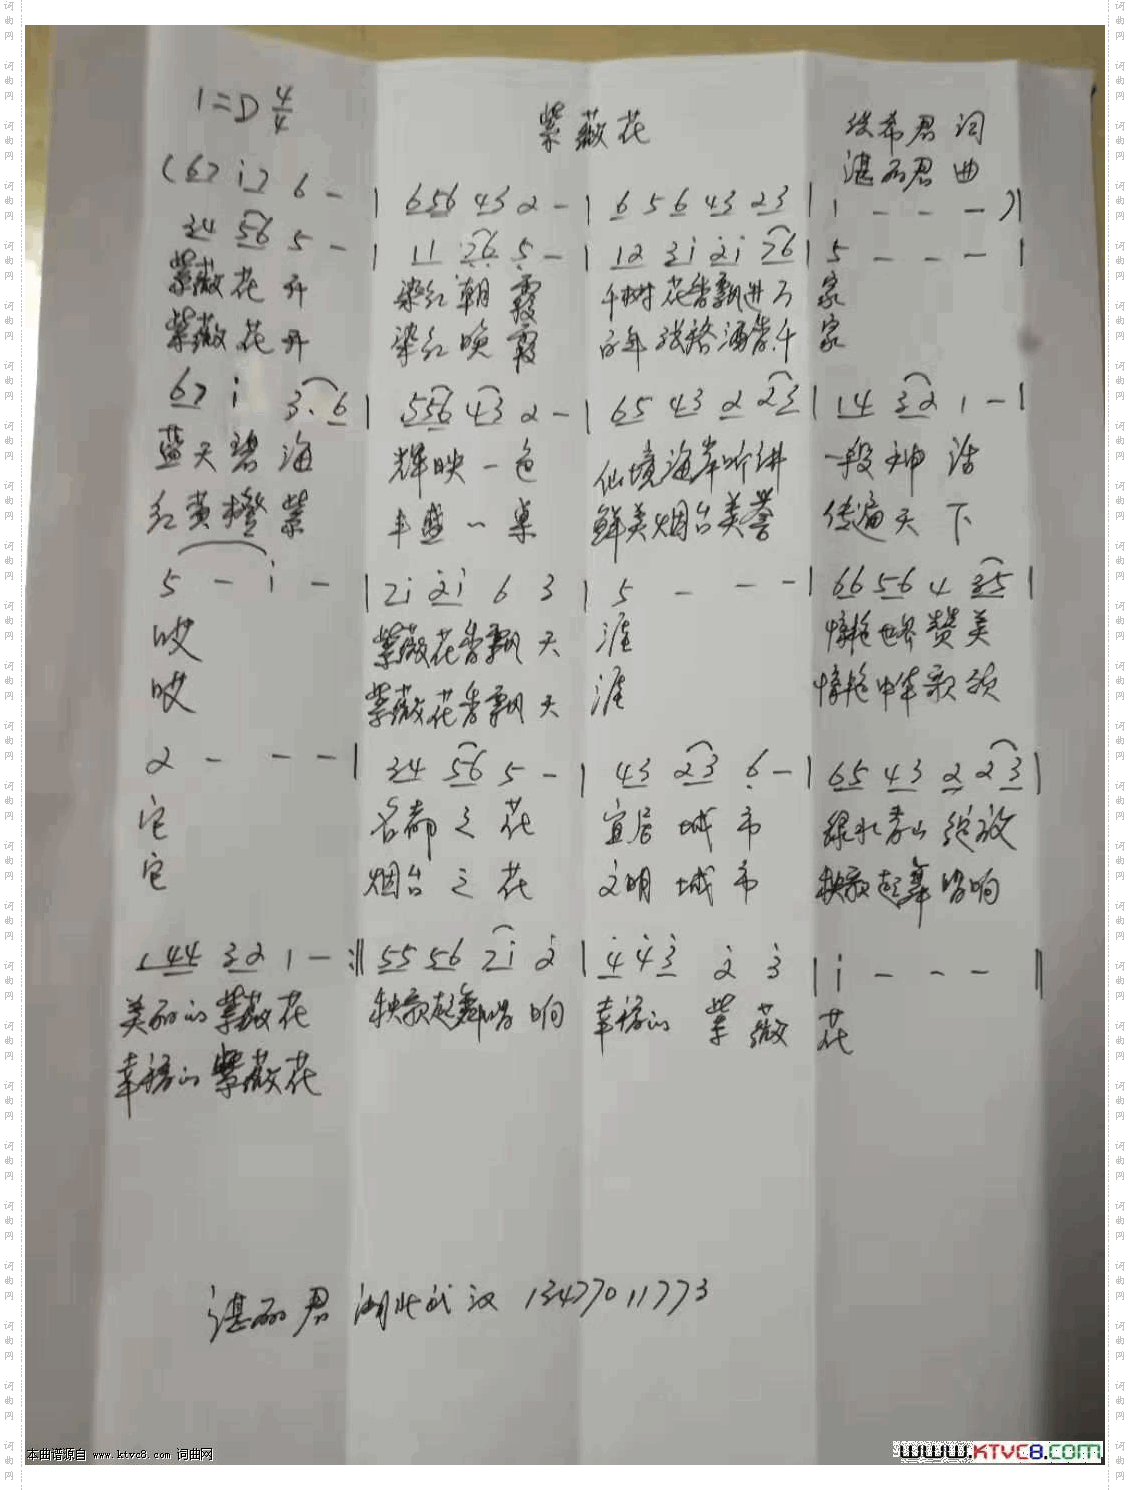 1=D 4/4
紫薇花
希君 词
湛丽君 曲
(67 i7 6 - | 656 43 2 - | 6 5 6 43 23 | 1 - - - )|
34 56 5 - | 11 76 5 - | 12 3i 2i 76 | 5 - - - |
紫薇花开 染红朝霞 千树花香飘进万家
紫薇花开 染红晚霞 百年张裕酒香千家
67 i 3. 6 | 556 43 2 - | 65 43 2 23 | 14 32 1 - |
蓝天碧海 辉映一色 仙境海岸听讲 一段神话
红黄橙紫 丰盛一桌 鲜美烟台美誉 传遍天下
5 - i - | 7i 2i 6 3 | 5 - - - | 66 56 4 35 |
哎 紫薇花香飘天涯 惊艳世界赞美
哎 紫薇花香飘天涯 惊艳中华歌颂
2 - - - | 34 56 5 - | 43 23 6 - | 65 43 2 23 |
它 名都之花 宜居城市 绿水青山绽放
它 烟台之花 文明城市 秧歌起舞唱响
1 44 32 1 - :‖ 55 56 7i 2 | 4 43 2 3 | i - - - ‖
美丽的紫薇花 秧歌起舞唱响 幸福的紫薇花
幸福的紫薇花
湛丽君 湖北武汉 13477011773
本曲谱源自 www.ktvc8.com 词曲网
www.KTVC8.com
词曲网